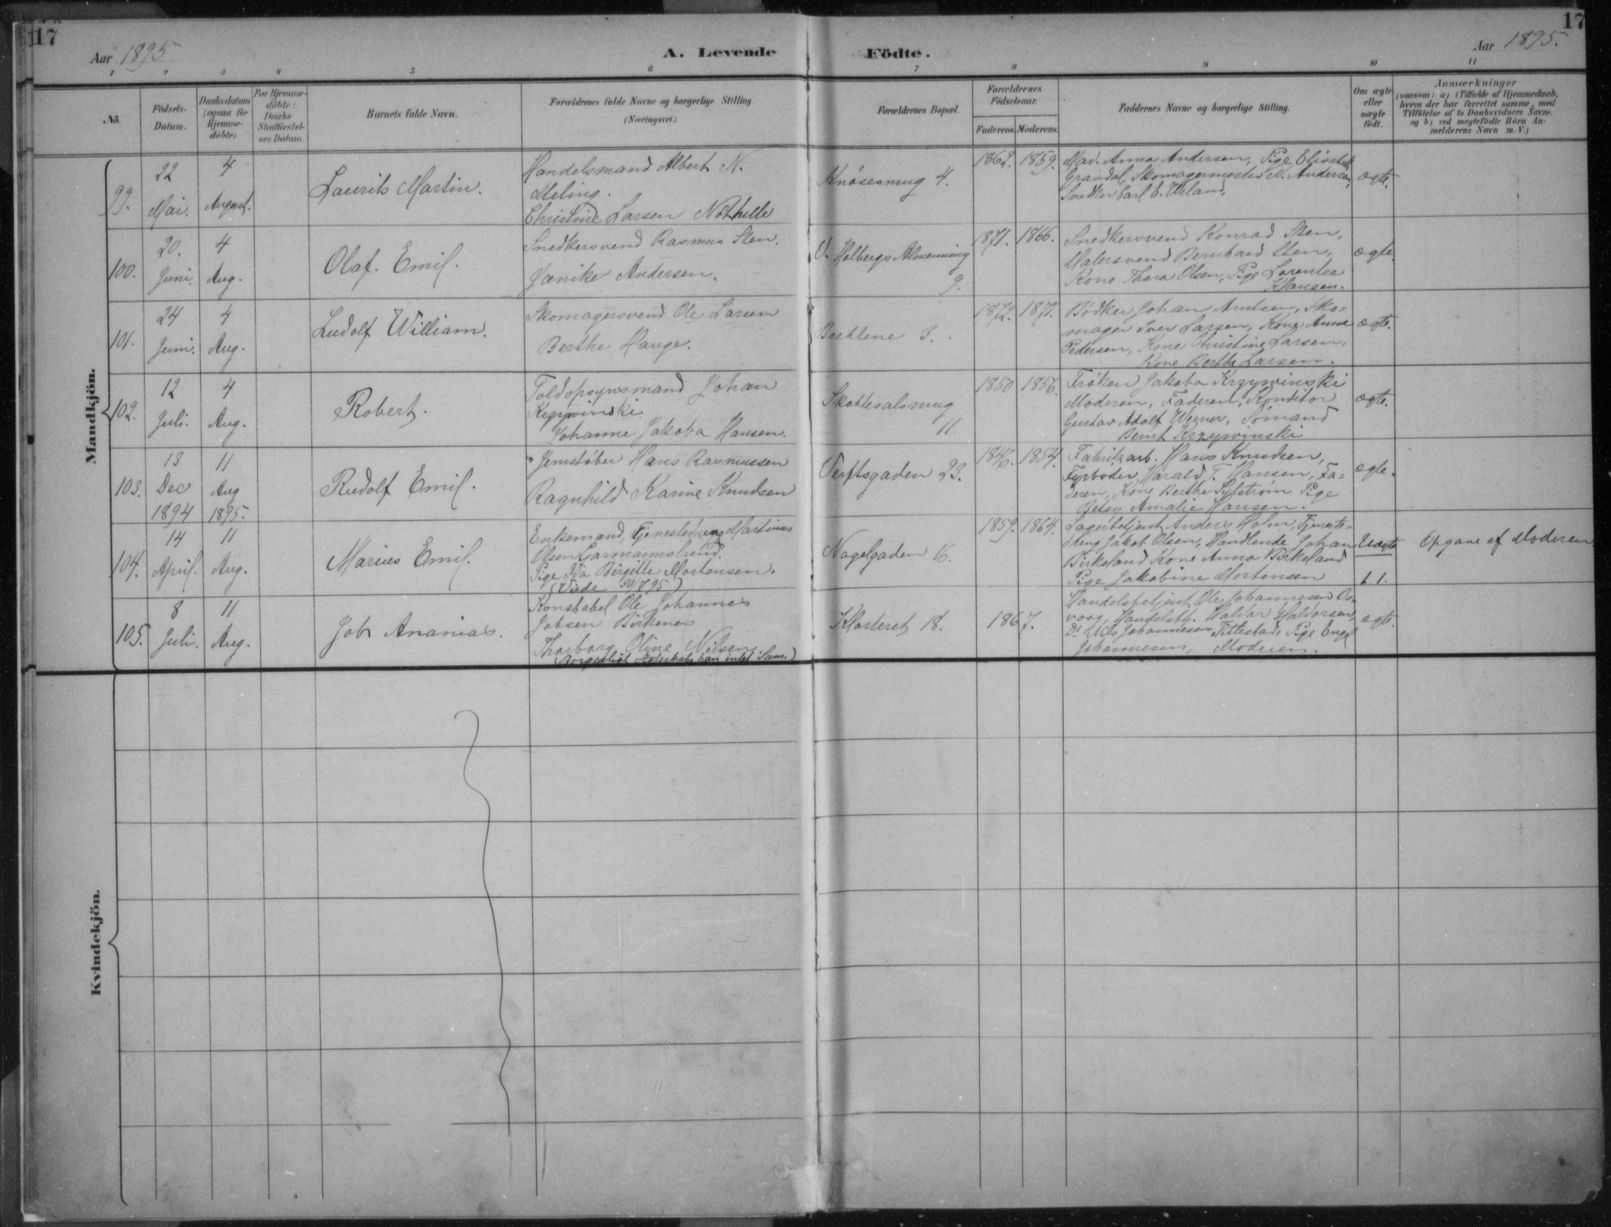 17
Aar 1895
A. Levende Födte.
Aar 1895.
17
1 2 3 4 5 6 7 8 9 10 11
No.
Födsels-
Datum.
Daabsdatum
(ogsaa for
Hjemme-
döbte).
For Hjemme-
döbte:
Daabs-
Stadfæstel-
ses Datum.
Barnets fulde Navn.
Forældrenes fulde Navne og borgerlige Stilling.
(Næringsvei.)
Forældrenes Bopæl.
Forældrenes
Födselsaar.
Faderens. Moderens.
Faddernes Navne og borgerlige Stilling.
Om ægte
eller
uægte
födt.
Anmærkninger
(saasom: a) (Tilfælde af Hjemmedaab,
hvem der har forrettet samme, med
Tilföielse af to Daabsvidners Navne.
og b) ved uægtefödte Börn An-
melderens Navn m. V.)
Mandkjön.
99.
22
Mai.
4
August.
Laurits Martin.
Handelsmand Albert N.
Meling.
Christine Larsen
Knøsesmug 4.
1862. 1859.
Mad. Anna Andersen, Pige
Grandal, Skomagermester N. Andersen,
Snedker Carl E.
ægte.
100.
20.
Juni.
4
Aug.
Olaf Emil.
Snedkersvend Rasmus Sten.
Jænike Andersen.
Holbergs Almenning
9.
1871. 1866.
Snedkersvend Konrad Sten,
Malersvend Bernhard Sten,
Kone Thora Olsen, Pige Lorentse
Hansen.
ægte.
101.
24
Juni.
4
Aug.
Ludolf William.
Skomagersvend Ole Larsen
Berthe Hauge.
3.
1872. 1871.
Bødker Johan Andsen, Sko-
mager Iver Larsen, Kone Anne
Pedersen, Kone Christine Larsen,
Kone Berthe Larsen.
ægte.
102.
12
Juli.
4
Aug.
Robert.
Toldopsynsmand Johan
Krzywinski.
Johanne Jakoba Hansen.
Skottesalsmug
11.
1850 1856.
Frøken Jakoba Krzywinski
Moderen, Faderen, Konditor
Gustav Adolf Werner, Sømand
Bernt Krzywinski
ægte.
103.
13
Dec
1894
11
Aug
1895.
Rudolf Emil.
Jernstøber Hans Rasmussen
Ragnhild Karine Knudsen
Verftsgaden 23.
1846. 1854.
Fabrikarb. Hans Knudsen,
Fyrbøder Harald F. Hansen, Fa-
deren, Kone Berthe Pige
Betsy Amalie Hansen.
ægte.
104.
14
April.
11
Aug.
Marius Emil.
Enkemand, Martinius
Olsen
Pige Ida Birgitte Mortensen.
Nagelgaden 16.
1859. 1864.
Lagerbetjent Anders Holm, Tjeneste-
dreng Jakob Olsen, Handlende Johan
Birkeland Kone Anna Birkeland
Pige Jakobine Mortensen
Uægte
Opgave af Moderen
105.
8
Juli.
11
Aug.
Job Ananias.
Konstabel Ole Johannes
Jobsen Birkenes
Thorborg Oline Nilsen
Klosteret 18.
1867.
Handelsbetjent Ole Johannesen Os-
voog, Handelsbtj. Halvor Halvorsen,
Do Nils Johannesen Tittestad, Pige
Johannesen, Moderen.
ægte.
Kvindekjön.